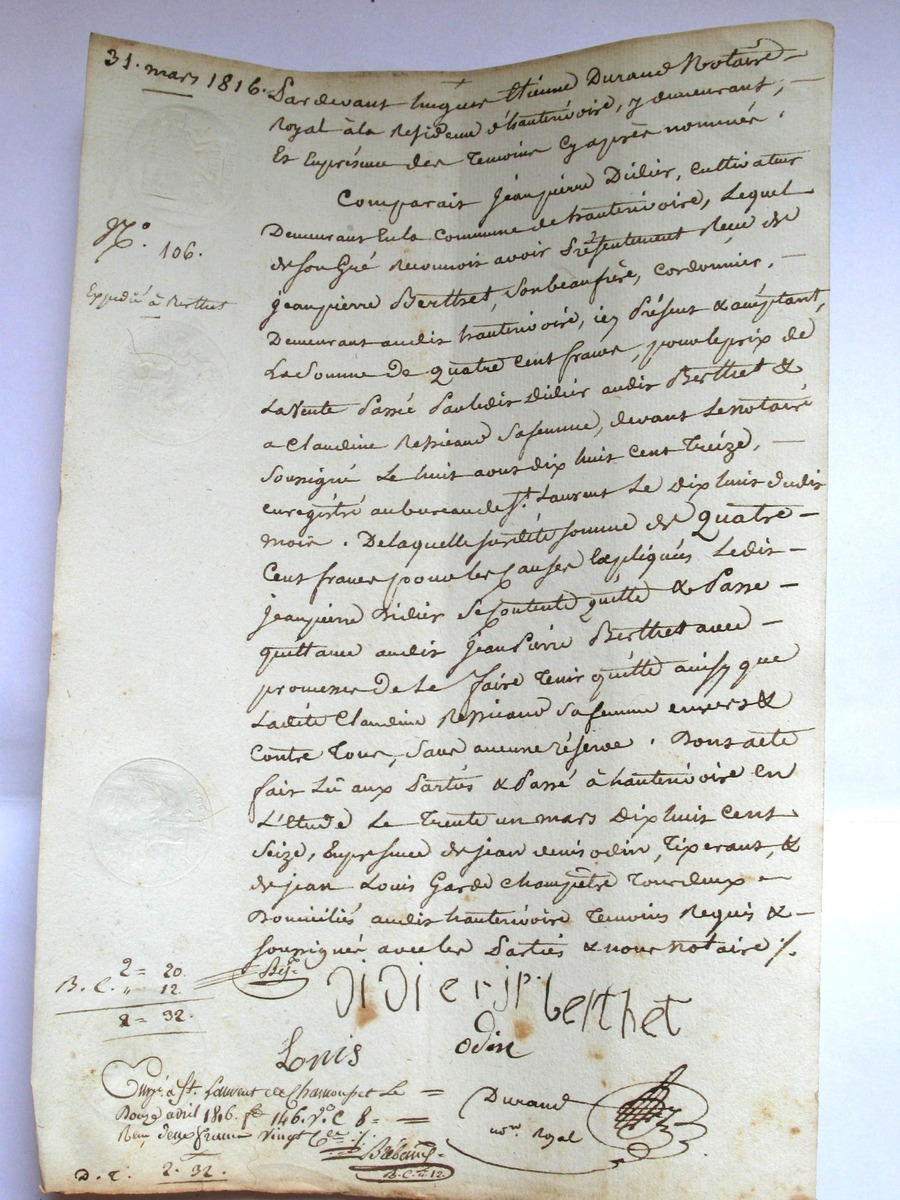 31. mars 1816.
Pardevant hugues Etienne Durand Notaire
Royal àla Residence d'hauterivoire, y demeurant,
Et Enprésence des Temoins Cyaprès nommés.
Comparait Jeanpierre Didier, Cultivateur
Demeurant Enla Commune de hauterivoire, Lequel
deson Gré Reconnoit avoir Présentement Receu de
Jeanpierre Berthet, Sonbeaufrère, Cordonnier,
Demeurant audit hauterivoire, icy Présent & acceptant,
La Somme de Quatre Cent francs, pour leprix de
La Vente Passée Parledit Didier audit Berthet &
a Claudine safemme, devant Lenotaire
Soussigné Le huit aoust dix huit Cent Treize,
enregistré aubureau de St. Laurent Le Dix huit dudit
mois. Delaquelle susdite somme de Quatre
Cent francs pour les Causes Expliquées Ledit
Jeanpierre Didier seContente quitte & Passe
quittance audit JeanPierre Berthet avec
promesse de Le faire Tenir quitte ainsy que
Ladite Claudine safemme envers &
Contre Tous, Sans aucune réserve. Dont acte
fait Lû aux Parties & Passé à hauterivoire en
L'Etude Le Trente un mars Dix huit Cent
Seize, Enpresence de jean denis odin, Tixerant, &
de jean Louis Garde Champêtre Tous deux
Domiciliés audit hauterivoire Temoins Requis &
soussignés avec les Parties & nous notaire ./.
No. 106.
Expedié à Berthet
2 = 20.
B. C. " 12.
2 = 32.
Didier jp. berthet
Louis odin
Durand
no.re Royal
Enrgé. à St. Laurent de Chamousset Le
Douze avril 1816. fo 146. Vo. C 8
Reçu deux francs vingt Cmes ./.
B.C. " 12
D. T. 2. 32.